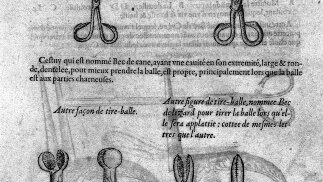 Cestuy qui est nommé Bec de cane, ayant vne cauité en son extremité, large & ron-
de, dentelee, pour mieux prendre la balle, est propre, principalement lors que la balle
est aux parties charneuses.
Autre façon de tire-balle.
Autre figure de tire-balle, nommee Bec
de lezard pour tirer la balle lors qu'el-
le sera applattie : cottee de mesmes let-
tres que l'autre.